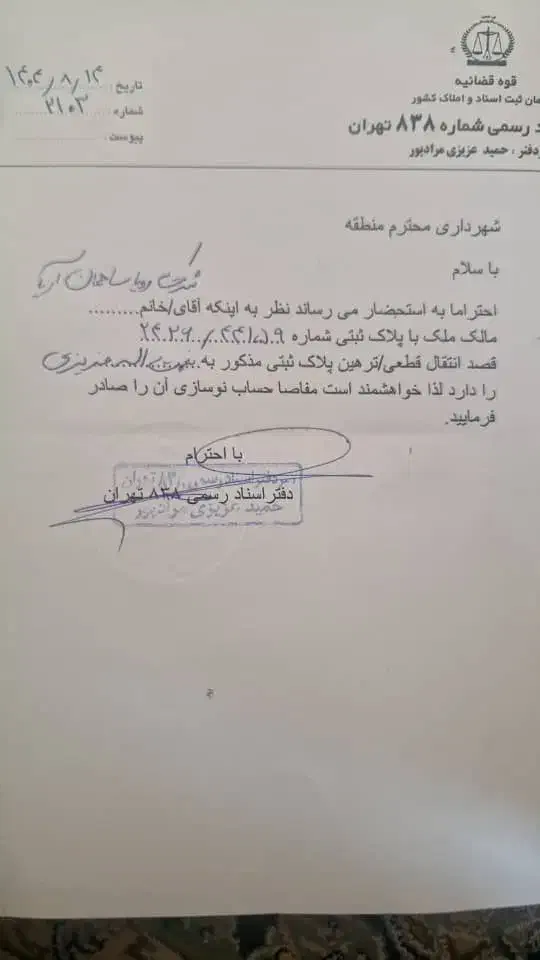 قوه قضائیه
مان ثبت اسناد و املاک کشور
د رسمی شماره ۸۳۸ تهران
ردفتر ، حمید عزیزی مرادپور
تاریخ : ۱۴۰۴/۸/۱۴
شماره : ۲۱۰۳
پیوست :
شهرداری محترم منطقه
با سلام
شرکت رویا ساختمان آریا
احتراما به استحضار می رساند نظر به اینکه آقای/خانم.........
مالک ملک با پلاک ثبتی شماره
قصد انتقال قطعی/ترهین پلاک ثبتی مذکور به
را دارد لذا خواهشمند است مفاصا حساب نوسازی آن را صادر
فرمایید.
با احترام
دفتر اسناد رسمی ۸۳۸ تهران
حمید عزیزی مرادپور